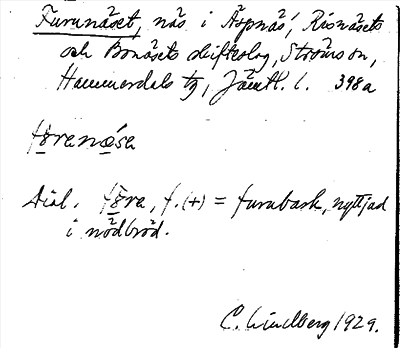 Furunäset, näs i Äspnäs, Risnäsets
och Bonäsets skifteslag, Ströms sn,
Hammerdals tg, Jämtl. l. 398a
Dial. f. (+) = furubark, nyttjad
i nödbröd.
C. Lindberg 1929.